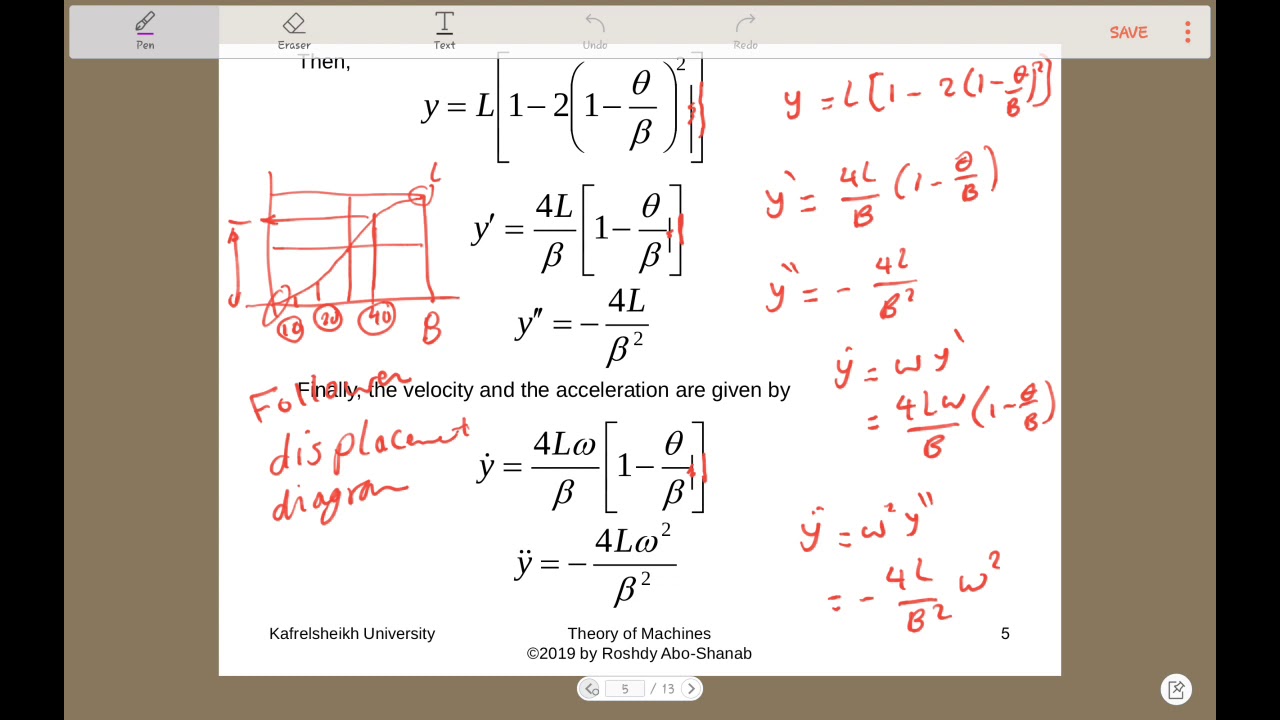 Pen
Eraser
Text
Undo
Redo
SAVE
Then,
y = L[1 − 2(1 − θ/β)²]
y = L[1 − 2(1 − θ/B)²]
y′ = 4L/β [1 − θ/β]
y` = 4L/B (1 − θ/B)
y″ = − 4L/β²
y`` = − 4L/B²
L
10
20
40
B
Finally, the velocity and the acceleration are given by
Follower
displacement
diagram
ẏ = ω y`
= 4Lω/B (1 − θ/B)
ẏ = 4Lω/β [1 − θ/β]
ÿ = ω² y``
= − 4L/B² ω²
ÿ = − 4Lω²/β²
Kafrelsheikh University
Theory of Machines
©2019 by Roshdy Abo-Shanab
5
5 / 13